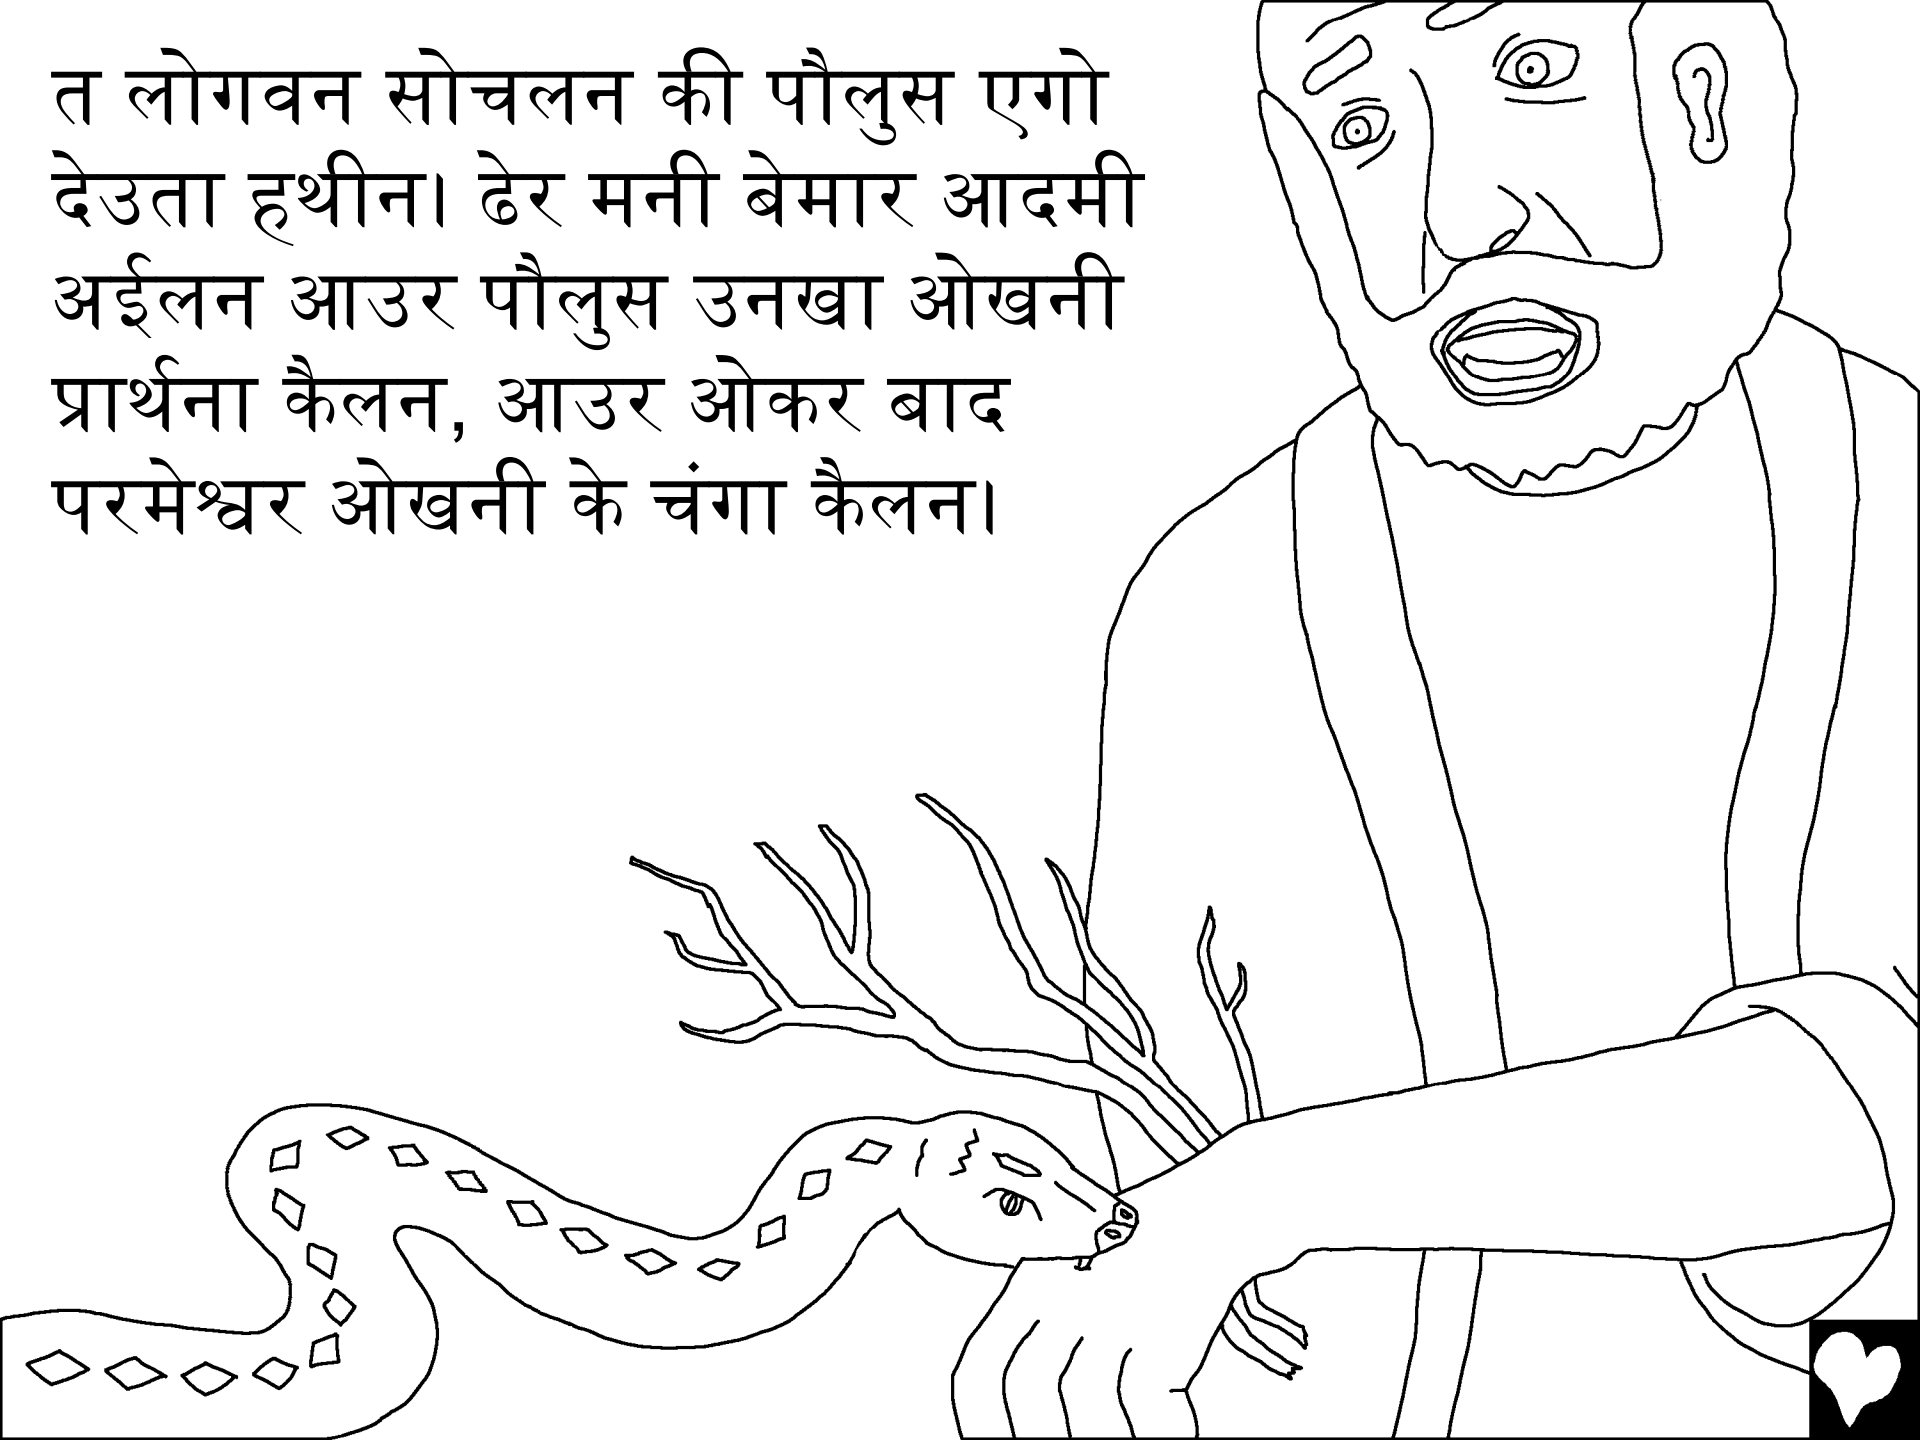 त लोगवन सोचलन की पौलुस एगो
देउता हथीन। ढेर मनी बेमार आदमी
अईलन आउर पौलुस उनखा ओखनी
प्रार्थना कैलन, आउर ओकर बाद
परमेश्वर ओखनी के चंगा कैलन।